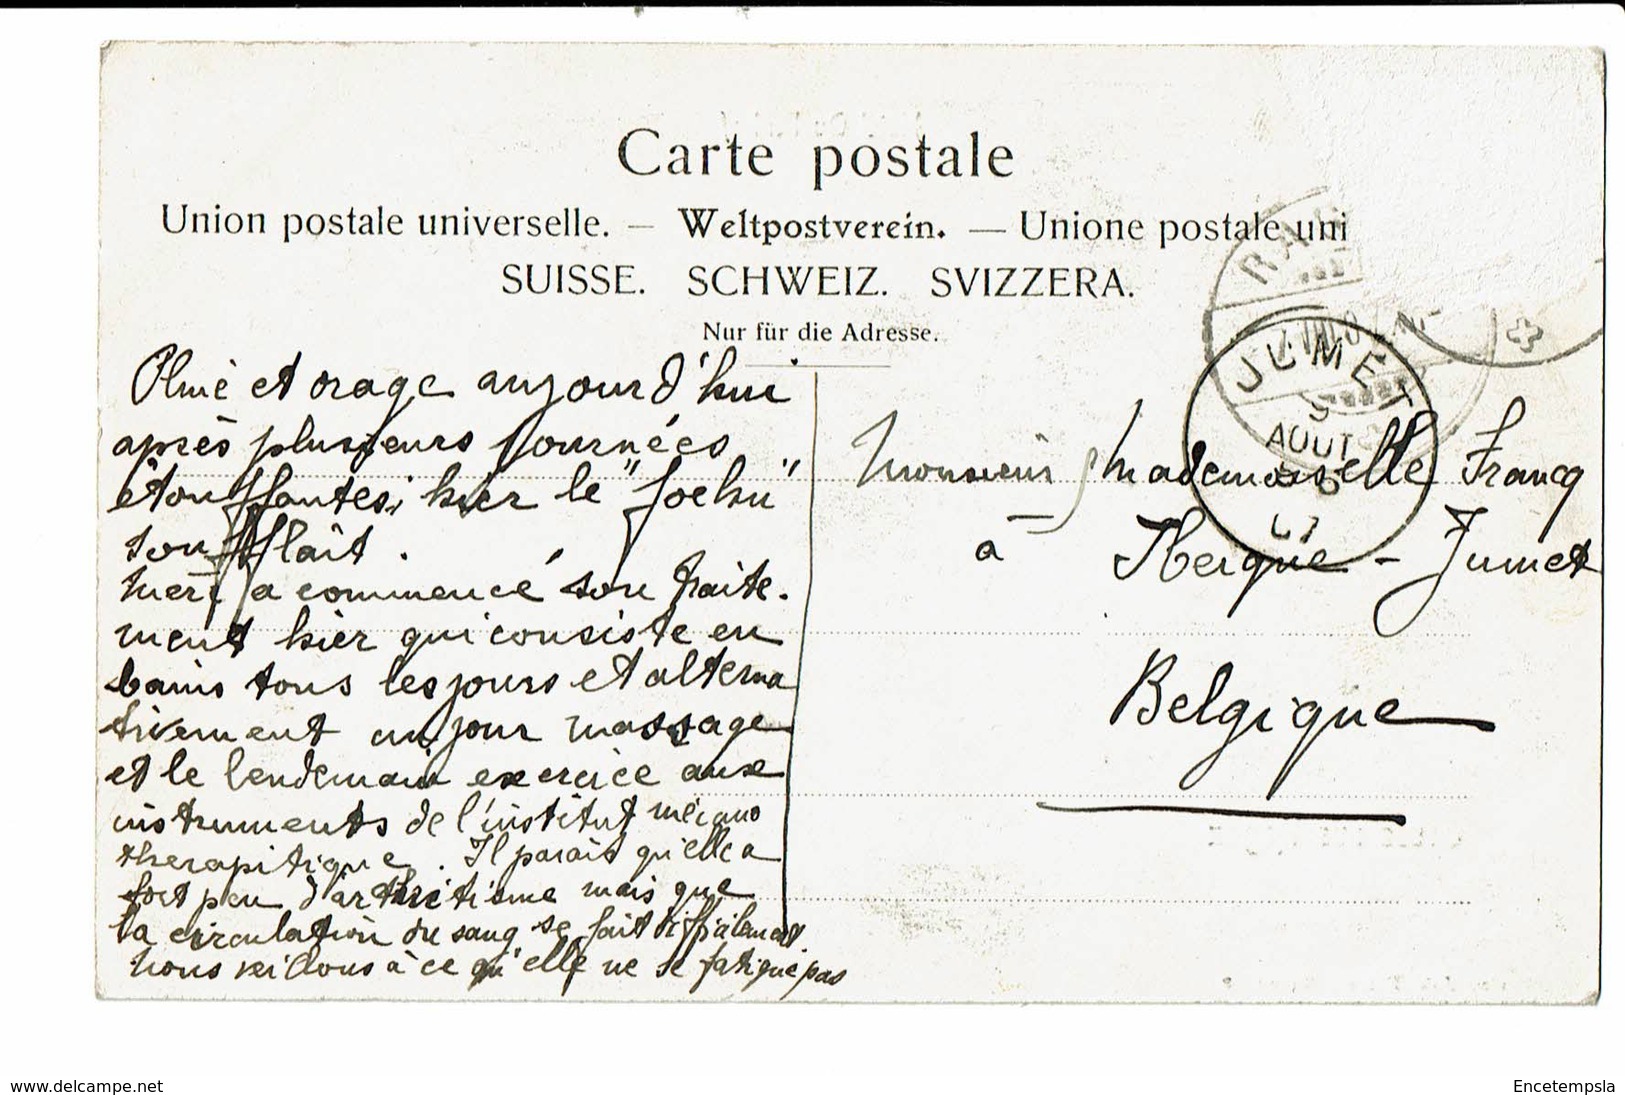 Carte postale
Union postale universelle. — Weltpostverein. — Unione postale uni
SUISSE. SCHWEIZ. SVIZZERA.
Nur für die Adresse.
JUMET
AOUT
et orage aujourd'hui
après plusieurs journées
étouffantes, hier le "Joehn"
soufflait.
Mère a commencé son traite-
ment hier qui consiste en
bains tous les jours et alterna
tivement un jour massage
et le lendemain exercice aux
instruments de l'institut mécano
therapitique. Il parait qu'elle a
fort peu d'arthritisme mais que
la circulation du sang se fait difficilement
Nous veillons à ce qu'elle ne se fatigue pas
Monsieur Mademoiselle Francq
à Heigne - Jumet
Belgique
www.delcampe.net
Encetempsla